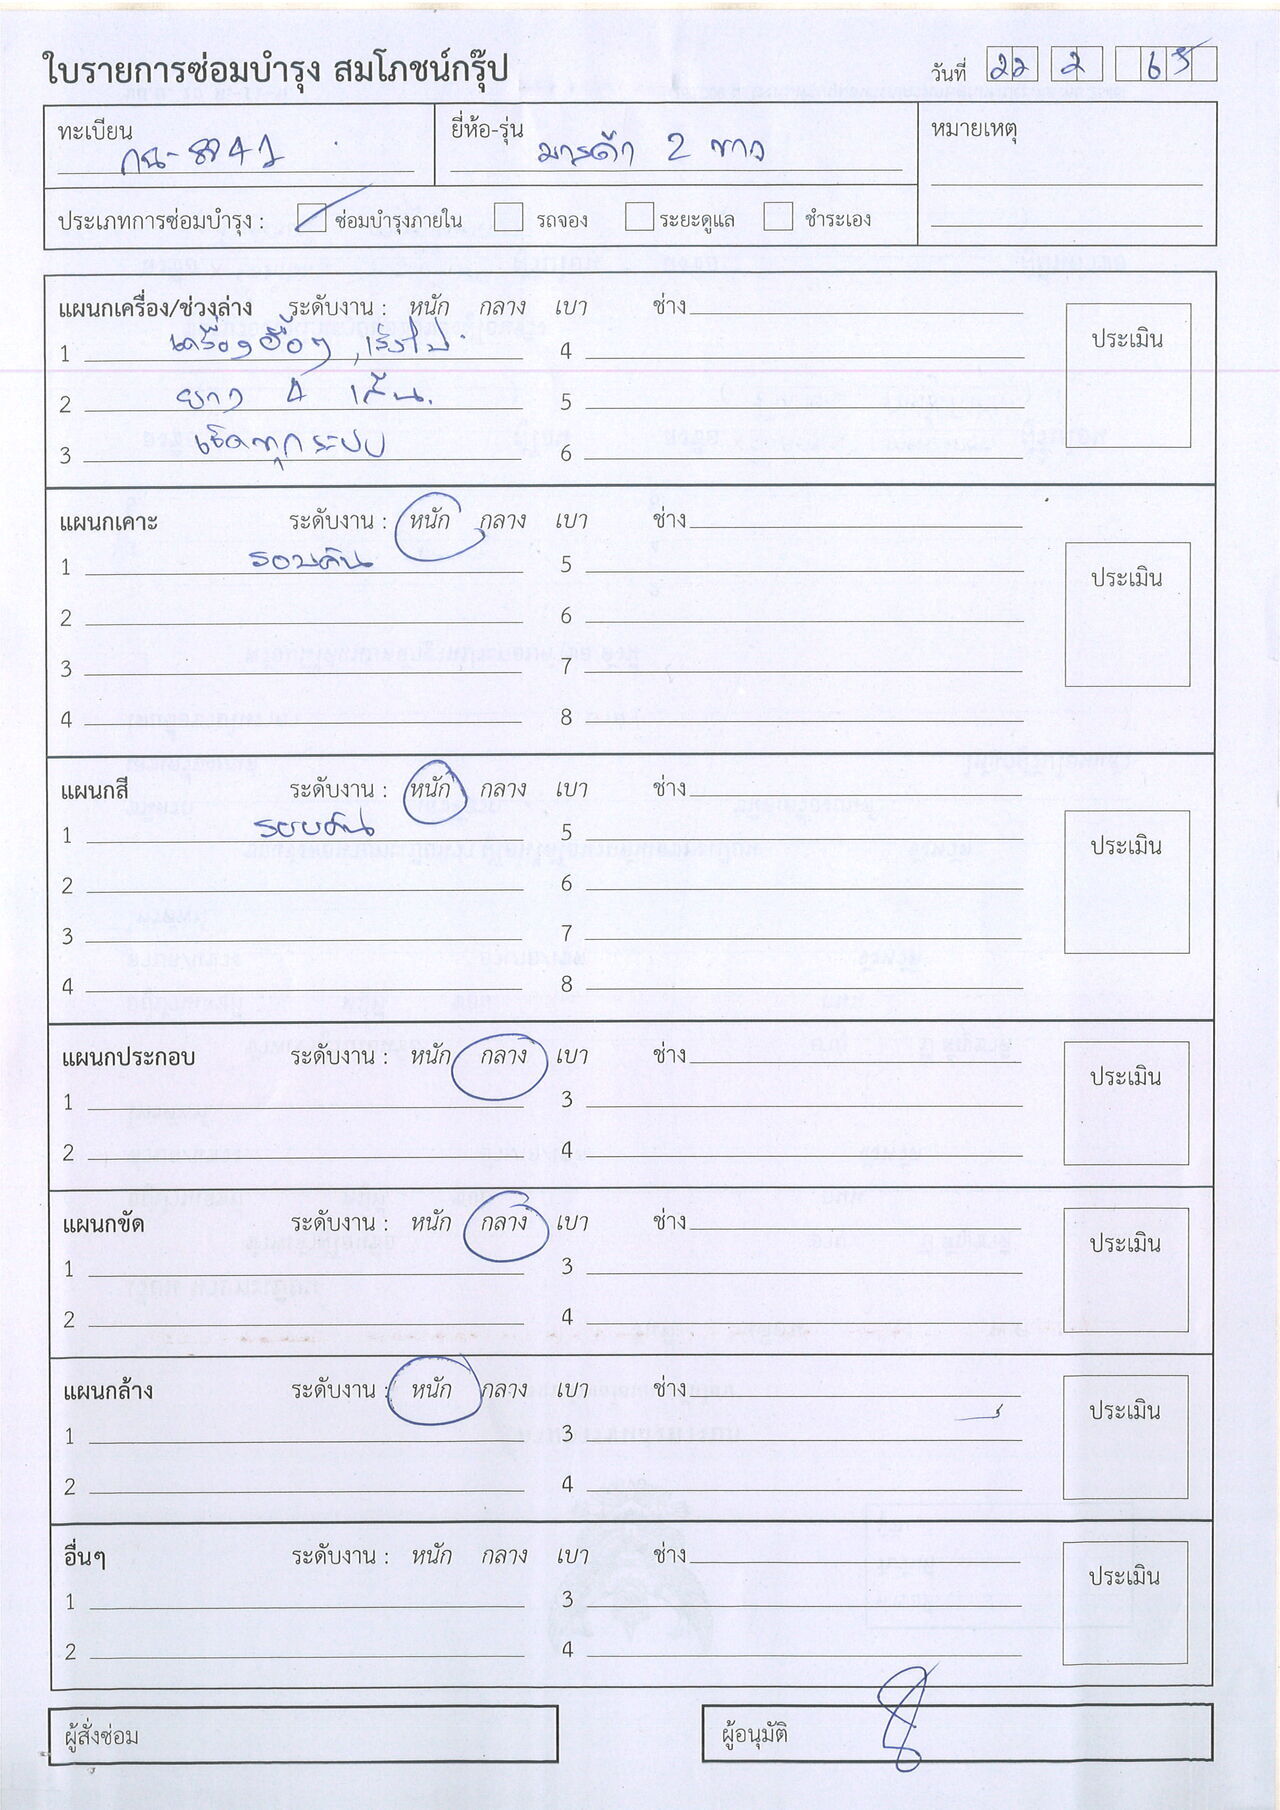 ใบรายการซ่อมบำรุง สมโภชน์กรุ๊ป
วันที่ 22 2 65
ทะเบียน ยี่ห้อ-รุ่น หมายเหตุ
กน-8941 มาสด้า 2 ขาว
ประเภทการซ่อมบำรุง : ซ่อมบำรุงภายใน รถจอง ระยะดูแล ชำระเอง
แผนกเครื่อง/ช่วงล่าง ระดับงาน : หนัก กลาง เบา ช่าง ประเมิน
1 เครื่องอื้อๆ, เร่งไป 4
2 ยาง 4 เส้น. 5
3 เช็คทุกระบบ 6
แผนกเคาะ ระดับงาน : หนัก กลาง เบา ช่าง ประเมิน
1 รอบคัน 5
2 6
3 7
4 8
แผนกสี ระดับงาน : หนัก กลาง เบา ช่าง ประเมิน
1 รอบคัน 5
2 6
3 7
4 8
แผนกประกอบ ระดับงาน : หนัก กลาง เบา ช่าง ประเมิน
1 3
2 4
แผนกขัด ระดับงาน : หนัก กลาง เบา ช่าง ประเมิน
1 3
2 4
แผนกล้าง ระดับงาน : หนัก กลาง เบา ช่าง ประเมิน
1 3
2 4
อื่นๆ ระดับงาน : หนัก กลาง เบา ช่าง ประเมิน
1 3
2 4
ผู้สั่งซ่อม ผู้อนุมัติ